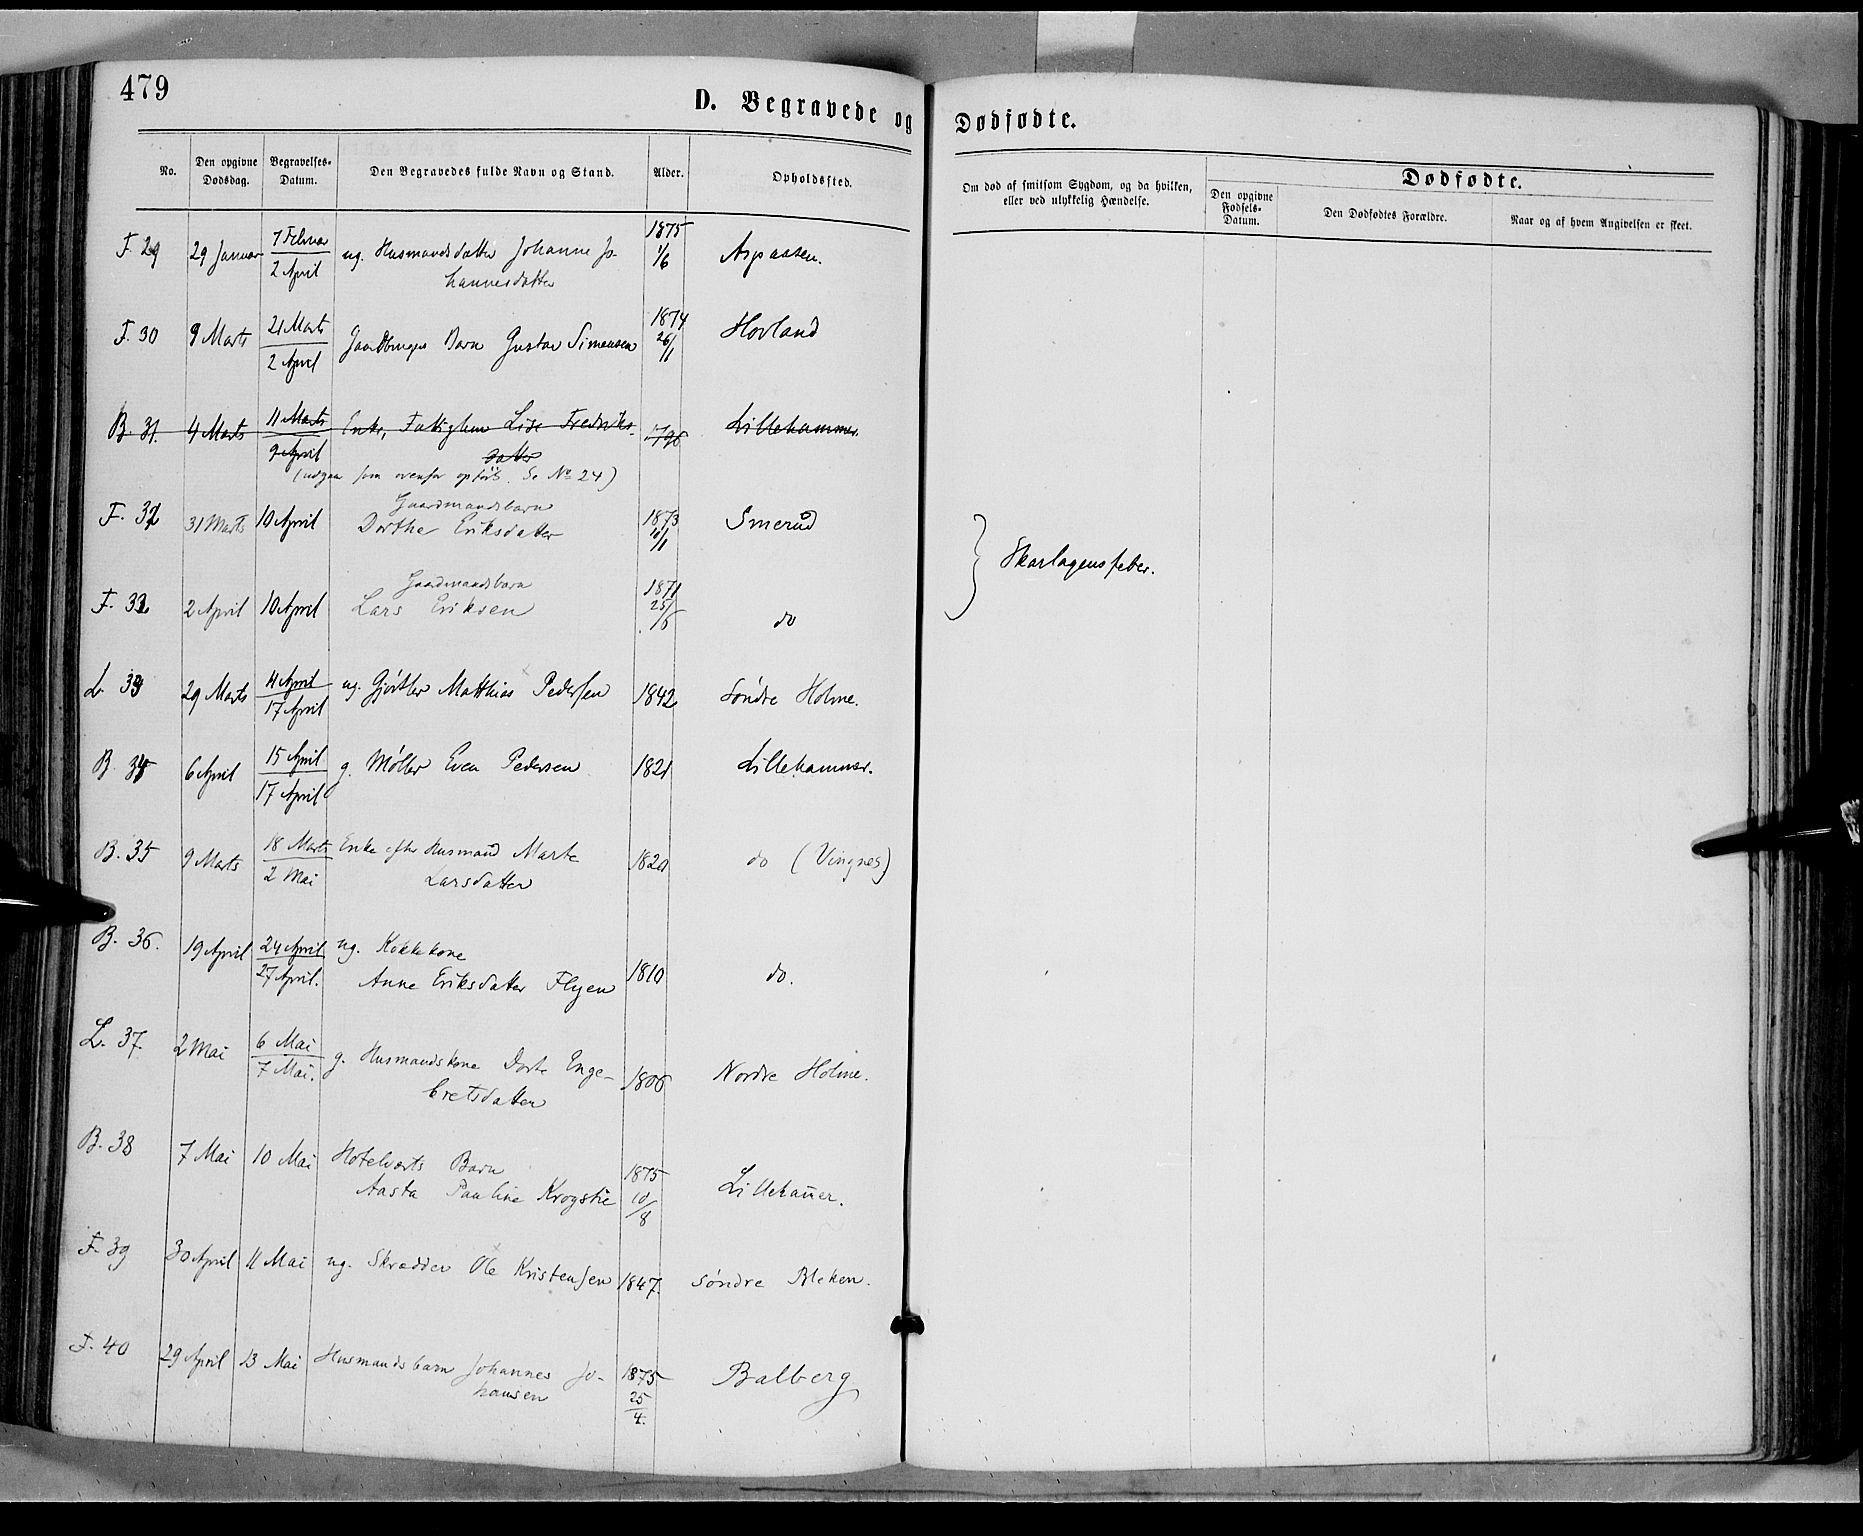 479
D. Begravede og Dødfødte.
No. Den opgivne Dødsdag. Begravelses-Datum. Den Begravedes fulde Navn og Stand. Alder. Opholdssted. Om død af smitsom Sygdom, og da hvilken, eller ved ulykkelig Hændelse. Dødfødte.
Den opgivne Fødsels-Datum. Den Dødfødtes Forældre. Naar og af hvem Angivelsen er skeet.
F. 29 29 Januar 7 Februar 2 April ug. Husmandsdatter Johanne Jo-
hannesdatter 1875 1/6 Aspaasen.
F. 30 9 Marts 21 Marts 2 April Barn Gustav Simensen 1874 26/1 Hovland
B. 31. 4 Marts 11 Marts 9 April Enke, Fattiglem Lise Fredriks-
datter 1796 Lillehammer.
(udgaar som ovenfor opført. Se No 24)
F. 31 31 Marts 10 April Gaardmandsbarn
Dorthe Eriksdatter 1873 10/1 Smerud
Skarlagensfeber.
F. 32 2 April 10 April Gaardmandsbarn
Lars Eriksen 1871 25/5 do
L. 33 29 Marts 4 April 17 April ug. Gjørtler Matthias Pedersen 1842 Søndre Holme.
B. 34 6 April 15 April 17 April g. Møller Even Pedersen 1821 Lillehammer.
B. 35 9 Marts 18 Marts 2 Mai Enke efter Husmand Marte
Larsdatter 1820 do (Vingnes)
B. 36. 19 April 24 April 27 April. ug. Kokkekone
Anne Eriksdatter Flyen 1810 do.
L. 37. 2 Mai 6 Mai 7 Mai. g. Husmandskone Dorte Enge-
bretsdatter 1806 Nordre Holme.
B. 38 7 Mai 10 Mai Hotelværts Barn
Aasta Pauline Krogstie 1875 10/8 Lillehamer.
F. 39 30 April 11 Mai ug. Skrædder Ole Kristensen 1847. Søndre Bleken.
F. 40 29 April 13 Mai Husmandsbarn Johannes Jo-
hansen 1875 25/4. Balberg